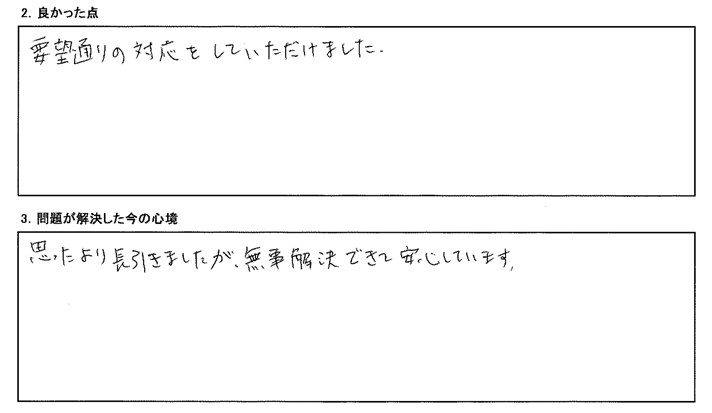 2. 良かった点
要望通りの対応をしていただけました.
3. 問題が解決した今の心境
思ったより長引きましたが、無事解決できて安心しています。